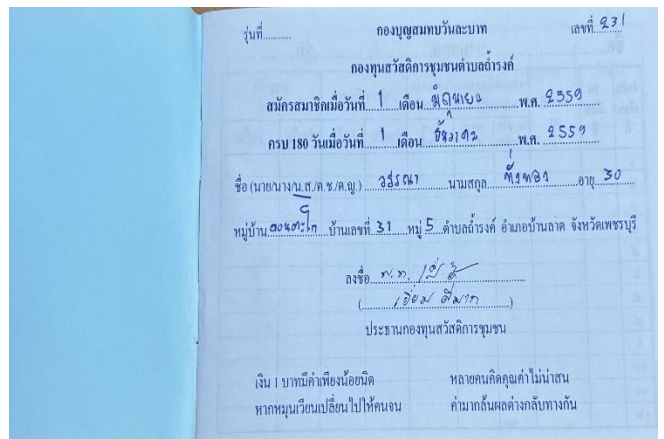 รุ่นที่.......... กองบุญสมทบวันละบาท เลขที่ 231
กองทุนสวัสดิการชุมชนตำบลถ้ำรงค์
สมัครสมาชิกเมื่อวันที่ 1 เดือน มิถุนายน พ.ศ. 2559
ครบ 180 วันเมื่อวันที่ 1 เดือน ธันวาคม พ.ศ. 2559
ชื่อ (นาย/นาง/น.ส./ด.ช./ด.ญ.) วรรณา นามสกุล อายุ 30
หมู่บ้าน บ้านเลขที่ 31 หมู่ 5 ตำบลถ้ำรงค์ อำเภอบ้านลาด จังหวัดเพชรบุรี
ลงชื่อ
ประธานกองทุนสวัสดิการชุมชน
เงิน 1 บาทมีค่าเพียงน้อยนิด หลายคนคิดคุณค่าไม่น่าสน
หากหมุนเวียนเปลี่ยนไปให้คนจน ค่ามากล้นผลต่างกลับทางกัน